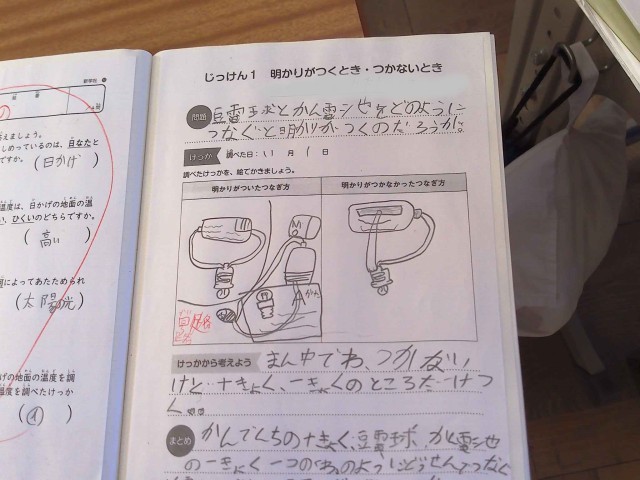 新学社
答えましょう。
しめっているのは、日なたと
ですか。
(日かげ)
温度は、日かげの地面の温
い、ひくいのどちらですか。
(高い)
によってあたためられ
(太陽の光)
げの地面の温度を調
温度を調べたけっか
(④)
じっけん1 明かりがつくとき・つかないとき
問題 豆電球とかん電シ也をどのように
つなぐと明かりがつくのだろうか。
けっか 調べた日:11月1日
調べたけっかを、絵でかきましょう。
明かりがついたつなぎ方 明かりがつかなかったつなぎ方
回路
けっかから考えよう まん中でわ、つかない
けど+きょく、-きょくのところだけつ
く。
まとめ かんでんちの+きょく、豆電球、かん電シ也
の-きょく一つのわのようにどうせんでつなぐ